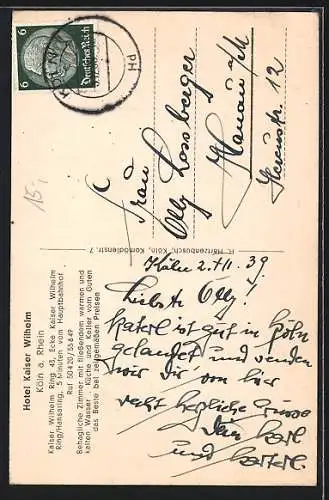 Hotel Kaiser Wilhelm
Köln a. Rhein
Kaiser Wilhelm Ring 43, Ecke Kaiser Wilhelm
Ring/Hansaring, 5 Minuten vom Hauptbahnhof
Ruf 50420/55649
Behagliche Zimmer mit fließendem warmen und
kalten Wasser. Küche und Keller vom Guten
das Beste bei zeitgemäßen Preisen
H. Härtzenbusch, Köln, Komödienstr. 7
6 Deutsches Reich 6
KÖLN
15,-
Frau
Olly Lossberger
Hanau a/M
12
Köln 2. 39
Liebste Olly!
Katerl ist gut in Köln
gelandet und senden
wir dir von hier
recht herzliche Grüsse
Dein Karl
und Katerl.